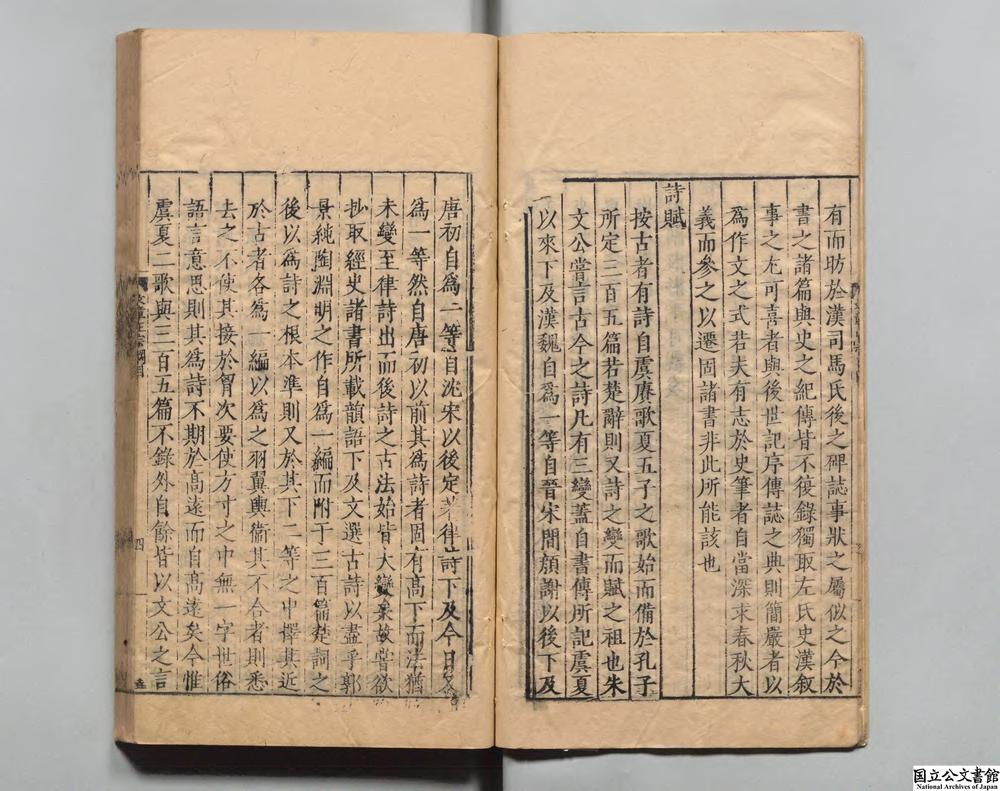 有而昉於漢司馬氏後之碑誌事狀之屬似之今於
書之諸篇與史之紀傳皆不復錄獨取左氏史漢敘
事之尤可喜者與後世記序傳誌之典則簡嚴者以
爲作文之式若夫有志於史筆者自當深求春秋大
義而參之以遷固諸書非此所能該也
詩賦
按古者有詩自虞賡歌夏五子之歌始而備於孔子
所定三百五篇若楚辭則又詩之變而賦之祖也朱
文公嘗言古今之詩凡有三變蓋自書傳所記虞夏
以來下及漢魏自爲一等自晉宋間顏謝以後下及
唐初自爲二等自沈宋以後定著律詩下及今日又
爲一等然自唐初以前其爲詩者固有高下而法猶
未變至律詩出而後詩之古法始皆大變矣故嘗欲
抄取經史諸書所載韻語下及文選古詩以盡乎郭
景純陶淵明之作自爲一編而附于三百篇楚詞之
後以爲詩之根本準則又於其下二等之中擇其近
於古者各爲一編以爲之羽翼輿衞其不合者則悉
去之不使其接於胷次要使方寸之中無一字世俗
語言意思則其爲詩不期於高遠而自高遠矣今惟
虞夏二歌與三百五篇不錄外自餘皆以文公之言
文章正宗綱目
四
国立公文書館
National Archives of Japan